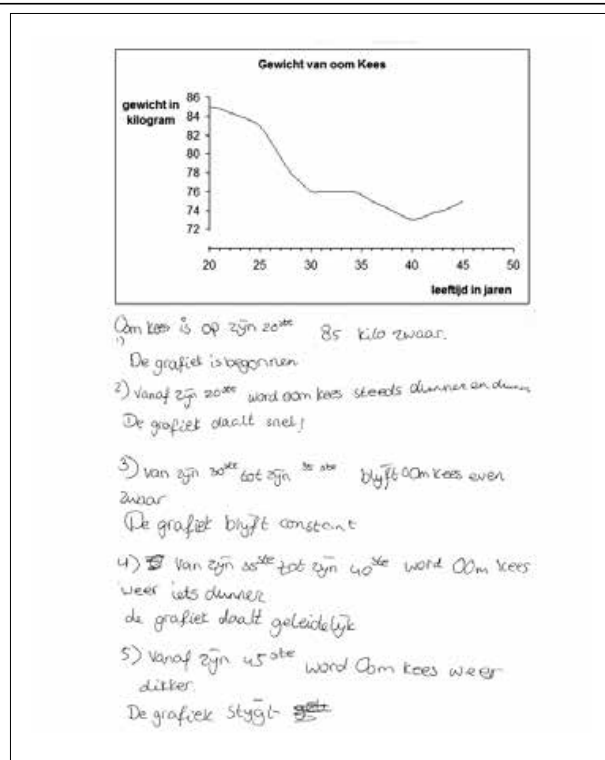 Gewicht van oom Kees
gewicht in
kilogram
86
84
82
80
78
76
74
72
20 25 30 35 40 45 50
leeftijd in jaren
Oom kees is op zijn 20ste 85 kilo zwaar.
1)
De grafiek is begonnen
2) Vanaf zijn 20ste word oom kees steeds dunner en dunn
De grafiek daalt snel!
3) Van zijn 30ste tot zijn 35 ste blijft oom kees even
zwaar
De grafiek blijft constant
4) Van zijn 35ste tot zijn 40ste word Oom kees
weer iets dunner
de grafiek daalt geleidelijk
5) Vanaf zijn 45ste word Oom kees weer
dikker.
De grafiek stijgt